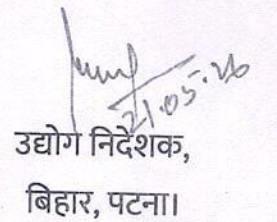 21.05.26
उद्योग निदेशक,
बिहार, पटना।